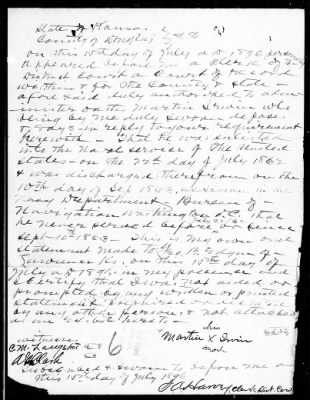 State of Kansas
County of Douglas } SS
on this 15th day of July A D 1896 personally
appeared before me a Clerk of the
District Court a Court of Record
within & for the County & State
aforesaid duly authorized to admin
ister oaths Martin Irvin who
being by me duly sworn deposes
& says in reply to your requirement
herewith - That I was
into the Naval service of the United
States on the 22nd day of July 1862
& was discharged therefrom on the
10th day of Sep 1863, in the
Navy Department - Bureau of
Navigation Washington D.C. that
he never served before or since
Sept 10th 1863 - This is my own oral
statement made to Geo
Lawrence Ks, on this 15th day of
July A D 1896, in my presence and
I certify that I was not aided or
prompted by any written or printed
statement prepared or dictated
by any other person, & not attached
as an exhibit hereto -
his
Martin X Irvin
mark
witnesses
C M
A Clark
6
Subscribed & sworn to before me on
this 15th day of July 1896
Clerk Dist. Court